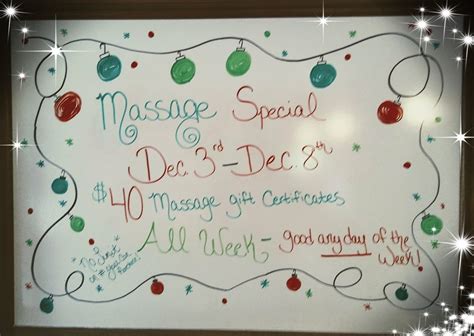 Massage Special
Dec. 3rd - Dec. 8th
$40 Massage gift Certificates
All Week - good any day of the Week!
*No limit on # you can purchase!*